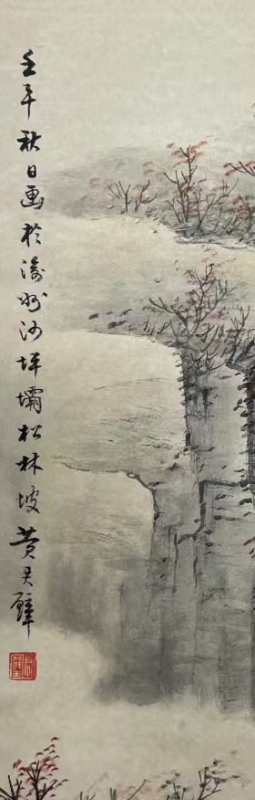 壬午秋日画於渝州沙坪壩松林坡黄君璧